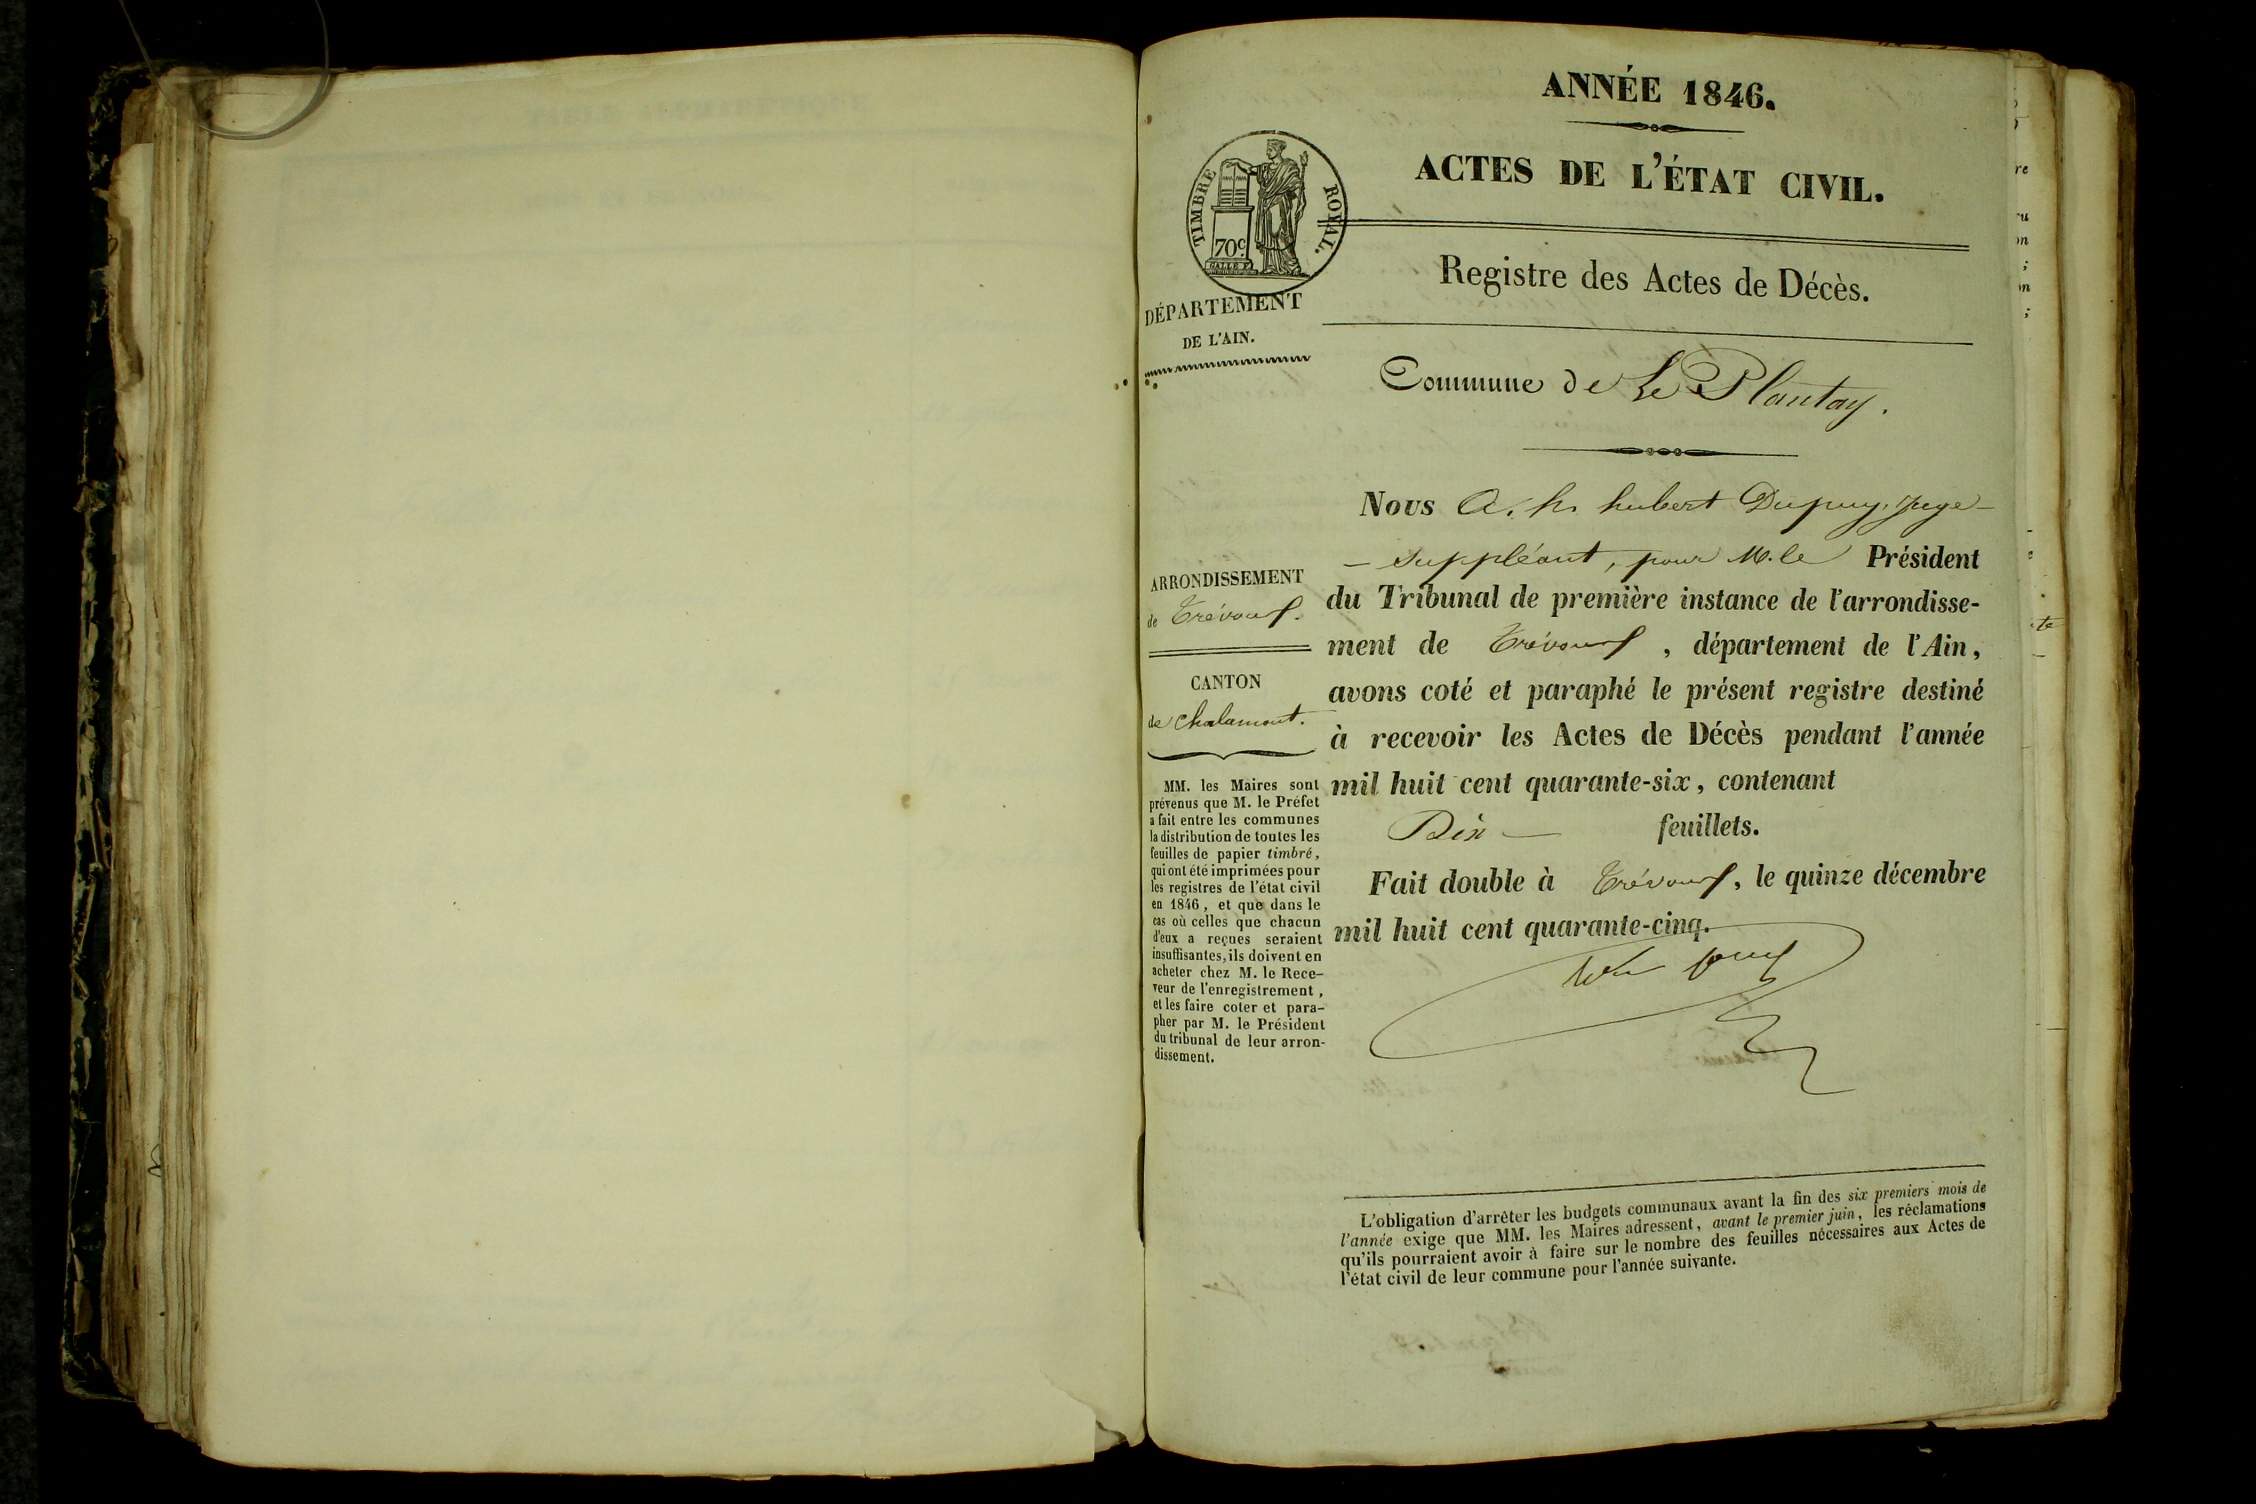 ANNÉE 1846.
ACTES DE L'ÉTAT CIVIL.
TIMBRE ROYAL.
70c.
Registre des Actes de Décès.
DÉPARTEMENT
DE L'AIN.
Commune de Le Plantay.
ARRONDISSEMENT
de Trévoux.
CANTON
de Chalamont.
MM. les Maires sont
prévenus que M. le Préfet
a fait entre les communes
la distribution de toutes les
feuilles de papier timbré,
qui ont été imprimées pour
les registres de l'état civil
en 1846, et que dans le
cas où celles que chacun
d'eux a reçues seraient
insuffisantes, ils doivent en
acheter chez M. le Rece-
veur de l'enregistrement,
et les faire coter et para-
pher par M. le Président
du tribunal de leur arron-
dissement.
Nous A. h. hubert Dupuy, juge-
- suppléant, pour M. le Président
du Tribunal de première instance de l'arrondisse-
ment de Trévoux, département de l'Ain,
avons coté et paraphé le présent registre destiné
à recevoir les Actes de Décès pendant l'année
mil huit cent quarante-six, contenant
Dix — feuillets.
Fait double à Trévoux, le quinze décembre
mil huit cent quarante-cinq.
L'obligation d'arrêter les budgets communaux avant la fin des six premiers mois de
l'année exige que MM. les Maires adressent, avant le premier juin, les réclamations
qu'ils pourraient avoir à faire sur le nombre des feuilles nécessaires aux Actes de
l'état civil de leur commune pour l'année suivante.